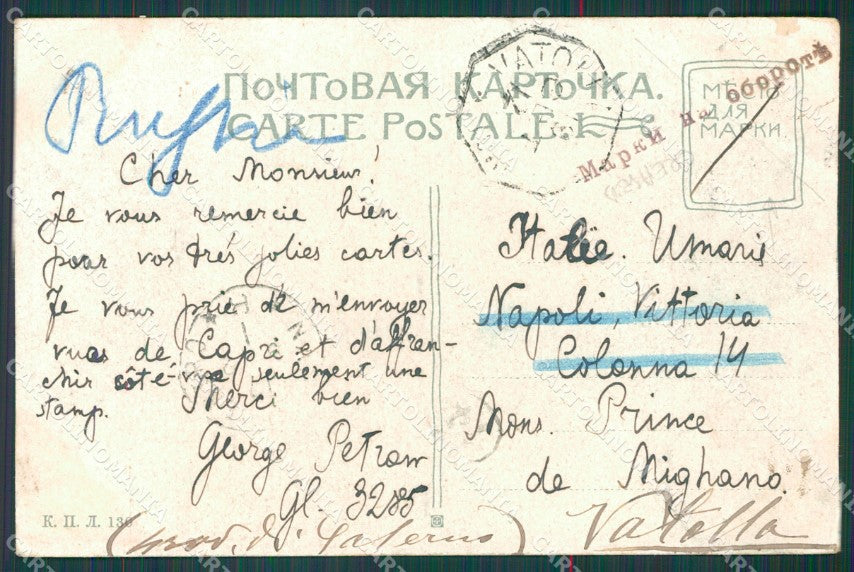 ПОЧТОВАЯ КАРТОЧКА.
CARTE POSTALE.
МѢСТО
ДЛЯ
МАРКИ.
Марки на оборотѣ
Cher Monsieur!
Je vous remercie bien
pour vos trés jolies cartes.
Je vous prie de m'envoyer
vues de Capri et d'affran-
chir côté-vue seulement une
stamp. Merci bien
George Petrow
Gl. 3285
Italie.
Napoli, Vittoria
Colonna 14
Mons. Prince
de Mighano.
Vatolla
(prov. di Salerno)
К. П. Л. 136
CARTOLINOMANIA